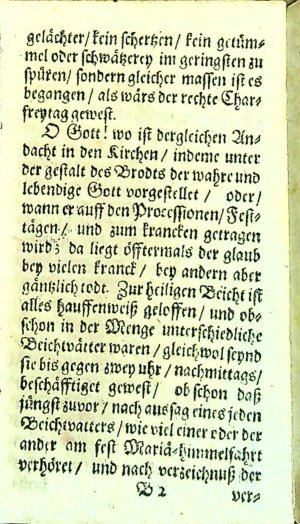 gelächter/ kein schertzen/ kein getüm-
mel oder schwätzerey im geringsten zu
spüren/ sondern gleicher massen ist es
begangen/ als wärs der rechte Char-
freytag gewest.
O Gott! wo ist dergleichen An-
dacht in den Kirchen/ indeme unter
der gestalt des Brodts der wahre und
lebendige Gott vorgestellet/ oder/
wann er auff den Processionen/ Fest-
tägen/ und zum krancken getragen
wird? da liegt öfftermals der glaub
bey vielen kranck/ bey andern aber
gäntzlich todt. Zur heiligen Beicht ist
alles hauffenweiß geloffen/ und ob-
schon in der Menge unterschiedliche
Beichtvätter waren/ gleichwol seynd
sie bis gegen zwey uhr/ nachmittags/
beschäfftiget gewest/ ob schon daß
jüngst zuvor/ nach aussag eines jeden
Beichtvatters/ wie viel einer oder der
ander am fest Mariä-himmelfahrt
verhöret/ und nach verzeichnuß der
B 2 ver-